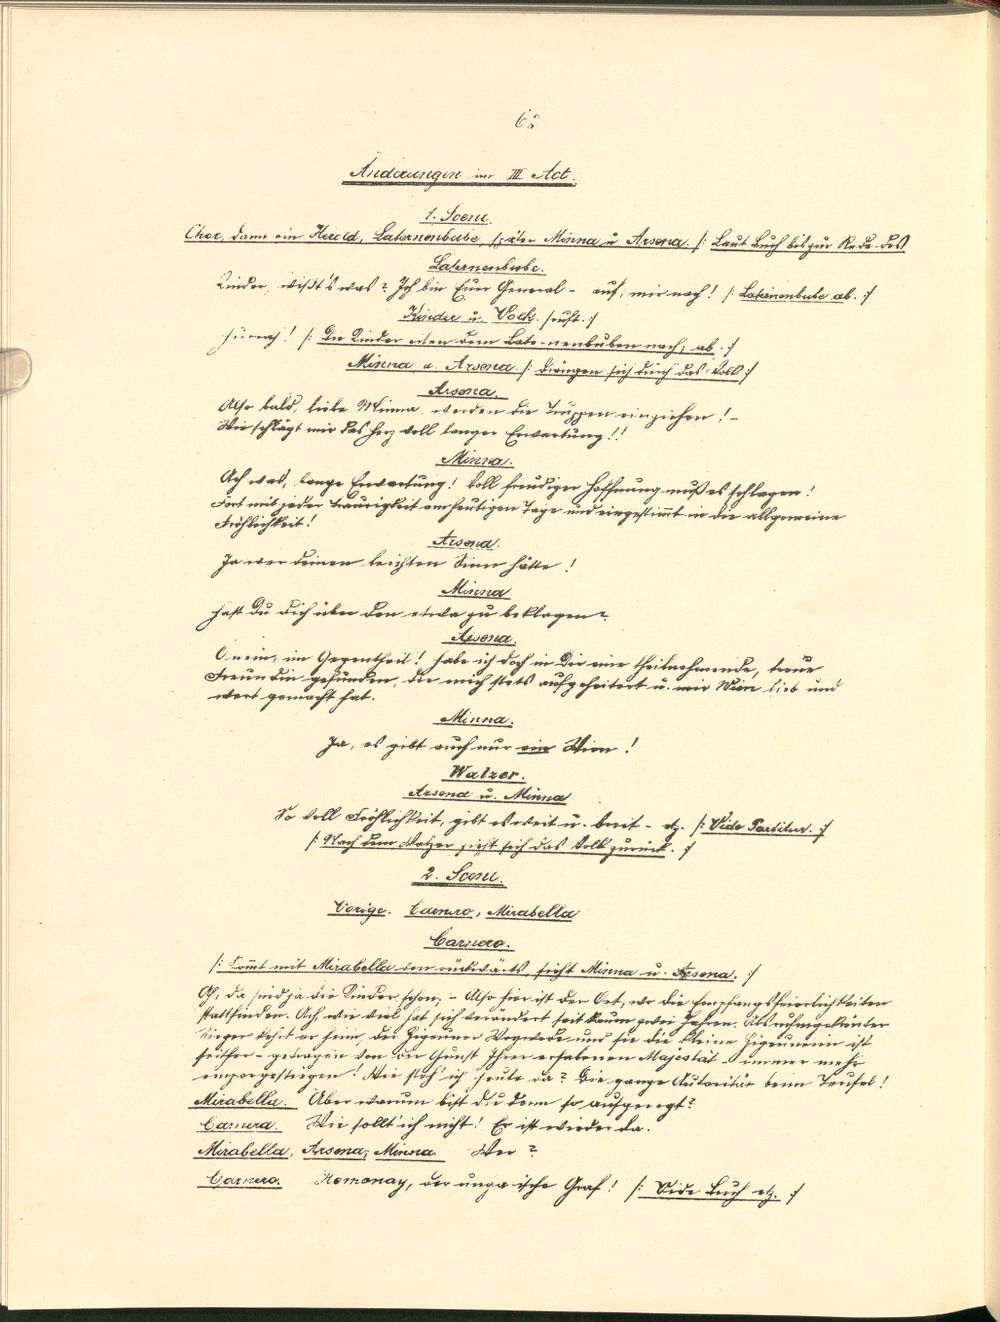 62
Änderungen im III Act.
1. Scene.
Chor, dann ein Herold, Laternenbube später Minna u Arsena /: Laut Buch bis zur Rede des
Laternenbube.
Kinder, wißt's was? Ich bin Euer General - auf, mir nach! /: Laternenbube ab. :/
Kinder u. Volk. /: ruft. :/
Hurrah! /: Die Kinder eilen dem Laternenbuben nach, ab. :/
Minna u. Arsena. /: drängen sich durch das Volk :/
Arsena.
Also bald, liebe Minna werden die Truppen einziehen! -
Wie schlägt mir das Herz voll banger Erwartung!!
Minna.
Ach was, bange Erwartung! Voll freudiger Hoffnung muß es schlagen!
Fort mit jeder Traurigkeit am heutigen Tage und eingestimmt in die allgemeine
Fröhlichkeit!
Arsena.
Ja wer deinen leichten Sinn hätte!
Minna
Hast Du dich über den etwa zu beklagen?
Arsena.
O nein, im Gegentheil! habe ich doch in Dir eine theilnehmende, treue
Freundin gefunden, die mich stets aufgeheitert u. mir Wien lieb und
wert gemacht hat.
Minna.
Ja, es gibt auch nur ein Wien!
Walzer.
Arsena u. Minna
So voll Fröhlichkeit, gibt es weit u. breit - etz. /: Vide Partitur. :/
/: Nach dem Walzer zieht sich das Volk zurück. :/
2. Scene.
Vorige. Carnero, Mirabella
Carnero.
/: Kommt mit Mirabella von rückwärts sieht Minna u. Arsena. :/
Ah, da sind ja die Kinder schon; - Also hier ist der Ort, wo die Empfangsfeierlichkeiten
stattfinden. Ach wie viel hat sich verändert seit kaum zwei Jahren. Als ruhmgekrönter
Sieger kehrt er heim, der Zigeuner Woywode und sie die kleine Zigeunerin ist
seither - getragen von der Gunst Ihrer erhabenen Majestät - immer mehr
emporgestiegen! Wie steh' ich heute da? Die ganze Autorität beim Teufel!
Mirabella. Aber warum bist du denn so aufgeregt?
Carnero. Wie sollt ich nicht! Er ist wieder da.
Mirabella, Arsena, Minna. Wer?
Carnero. Homonay, der ungarische Graf! /: Vide Buch etz. :/